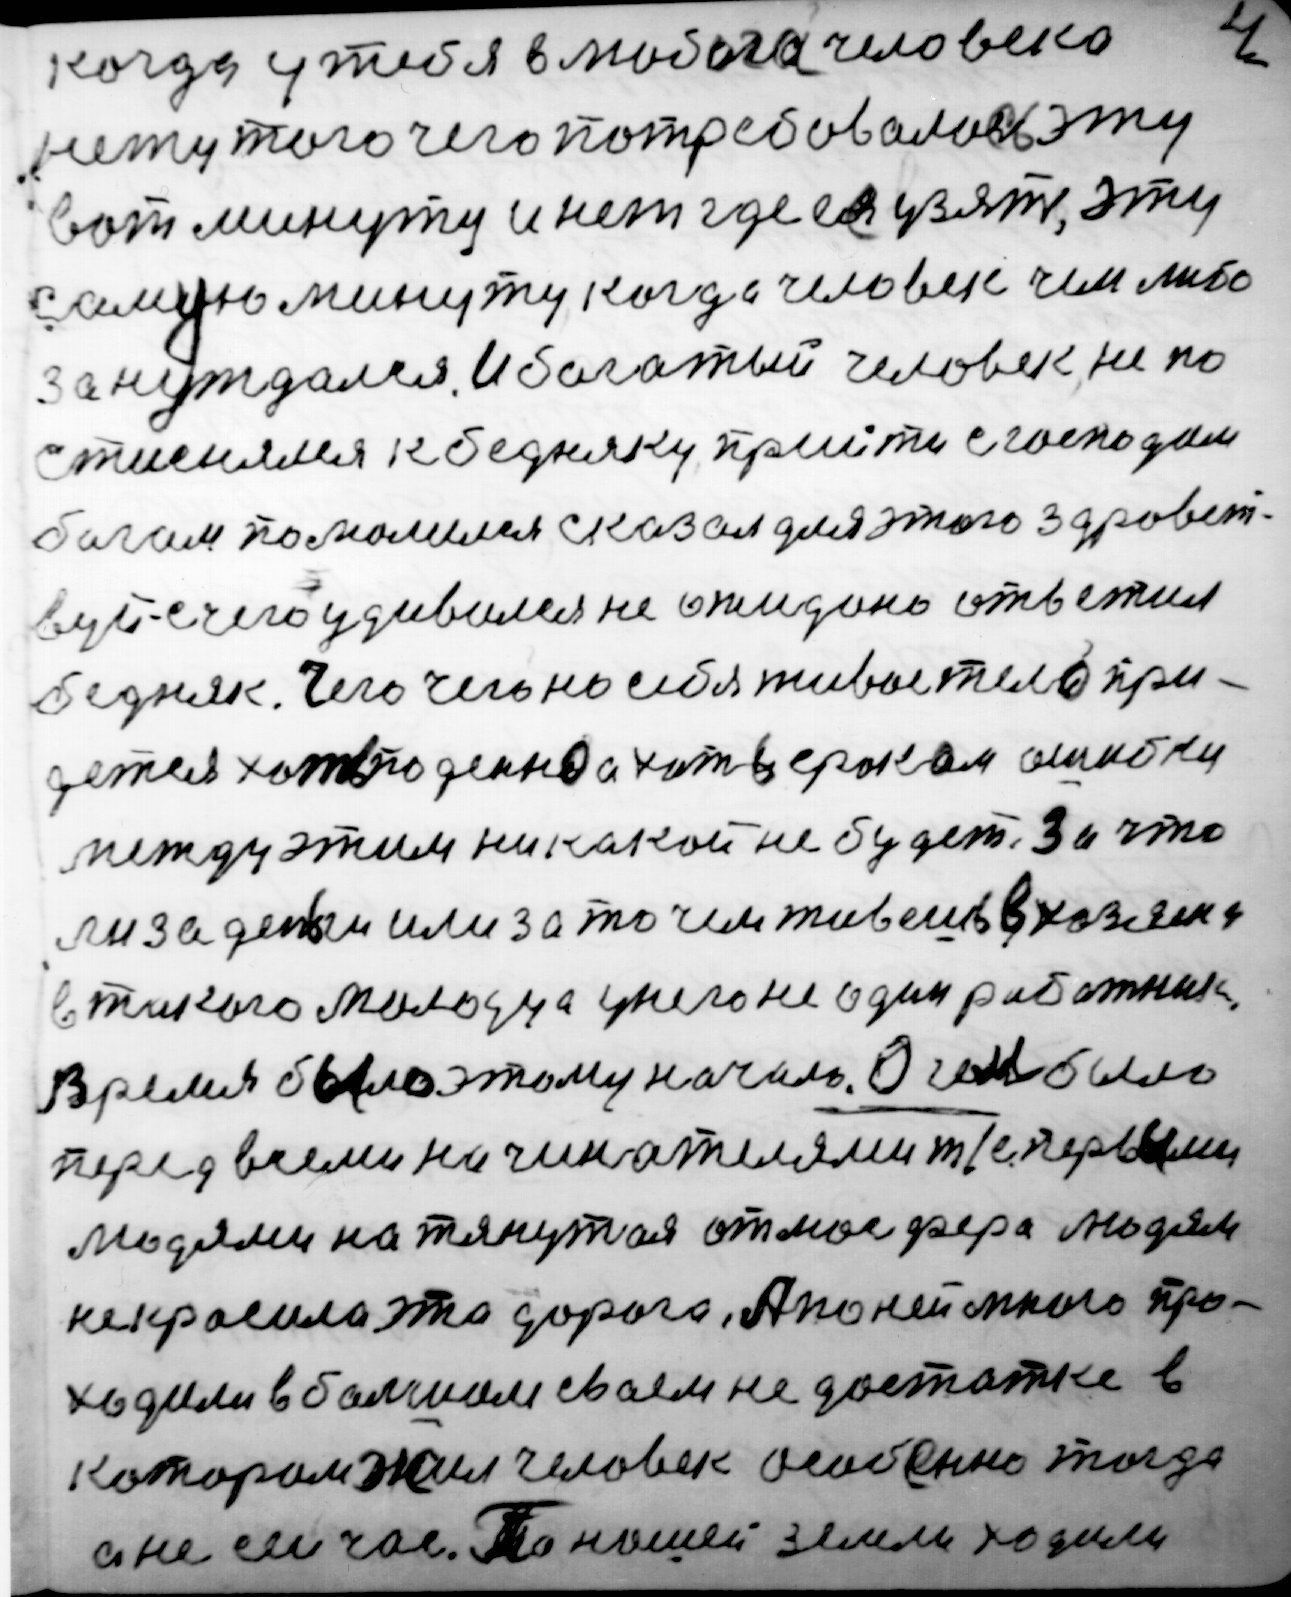 4
когда у тебя в любога человека
нету того чего потребовалось эту
вот минуту и нет где ея узять, эту
самую минуту когда человек чем либо
зануждался. И богатый человек не по
стиснялся к бедняку прийти с господом
богам помолился сказал для этого здровст-
вуй с чего удивился не ожидано ответил
бедняк. Чего чего но себя живое тело при-
дется хоть поденно а хоть сроком ошибки
между этим никакой не будет. За что
ли за деньги или за то чем живешь в хозяина
в такого молодца у него не один работник.
Время было этому начало. О чем было
перед всеми начинателями т/е. первыми
людями натянутая отмосфера людям
некрасила эта дорога. А по ней много про-
ходили в балшом сваем не достатке в
котором жил человек особенно тогда
а не сейчас. По нашей земли ходили